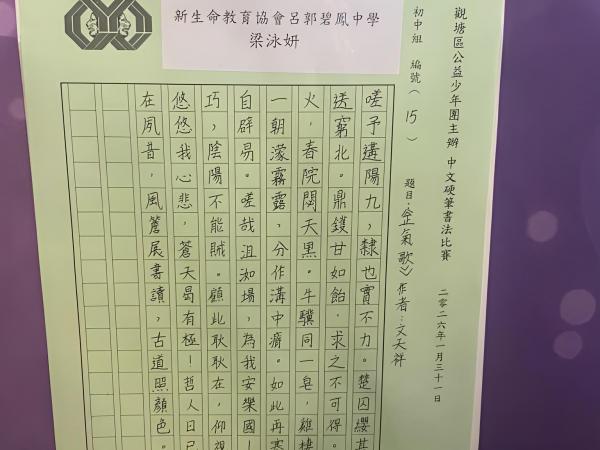 新生命教育協會呂郭碧鳳中學
梁泳妍
觀塘區公益少年團主辦 中文硬筆書法比賽 二零二六年一月三十一日
初中組 編號（15） 題目：《正氣歌》作者：文天祥
嗟予遘陽九，隸也實不力。楚囚纓其
送窮北。鼎鑊甘如飴，求之不可得。
火，春院閟天黑。牛驥同一皂，雞棲
一朝濛霧露，分作溝中瘠。如此再寒
自辟易。嗟哉沮洳場，為我安樂國！
巧，陰陽不能賊。顧此耿耿在，仰視
悠悠我心悲，蒼天曷有極！哲人日已
在夙昔，風簷展書讀，古道照顏色。